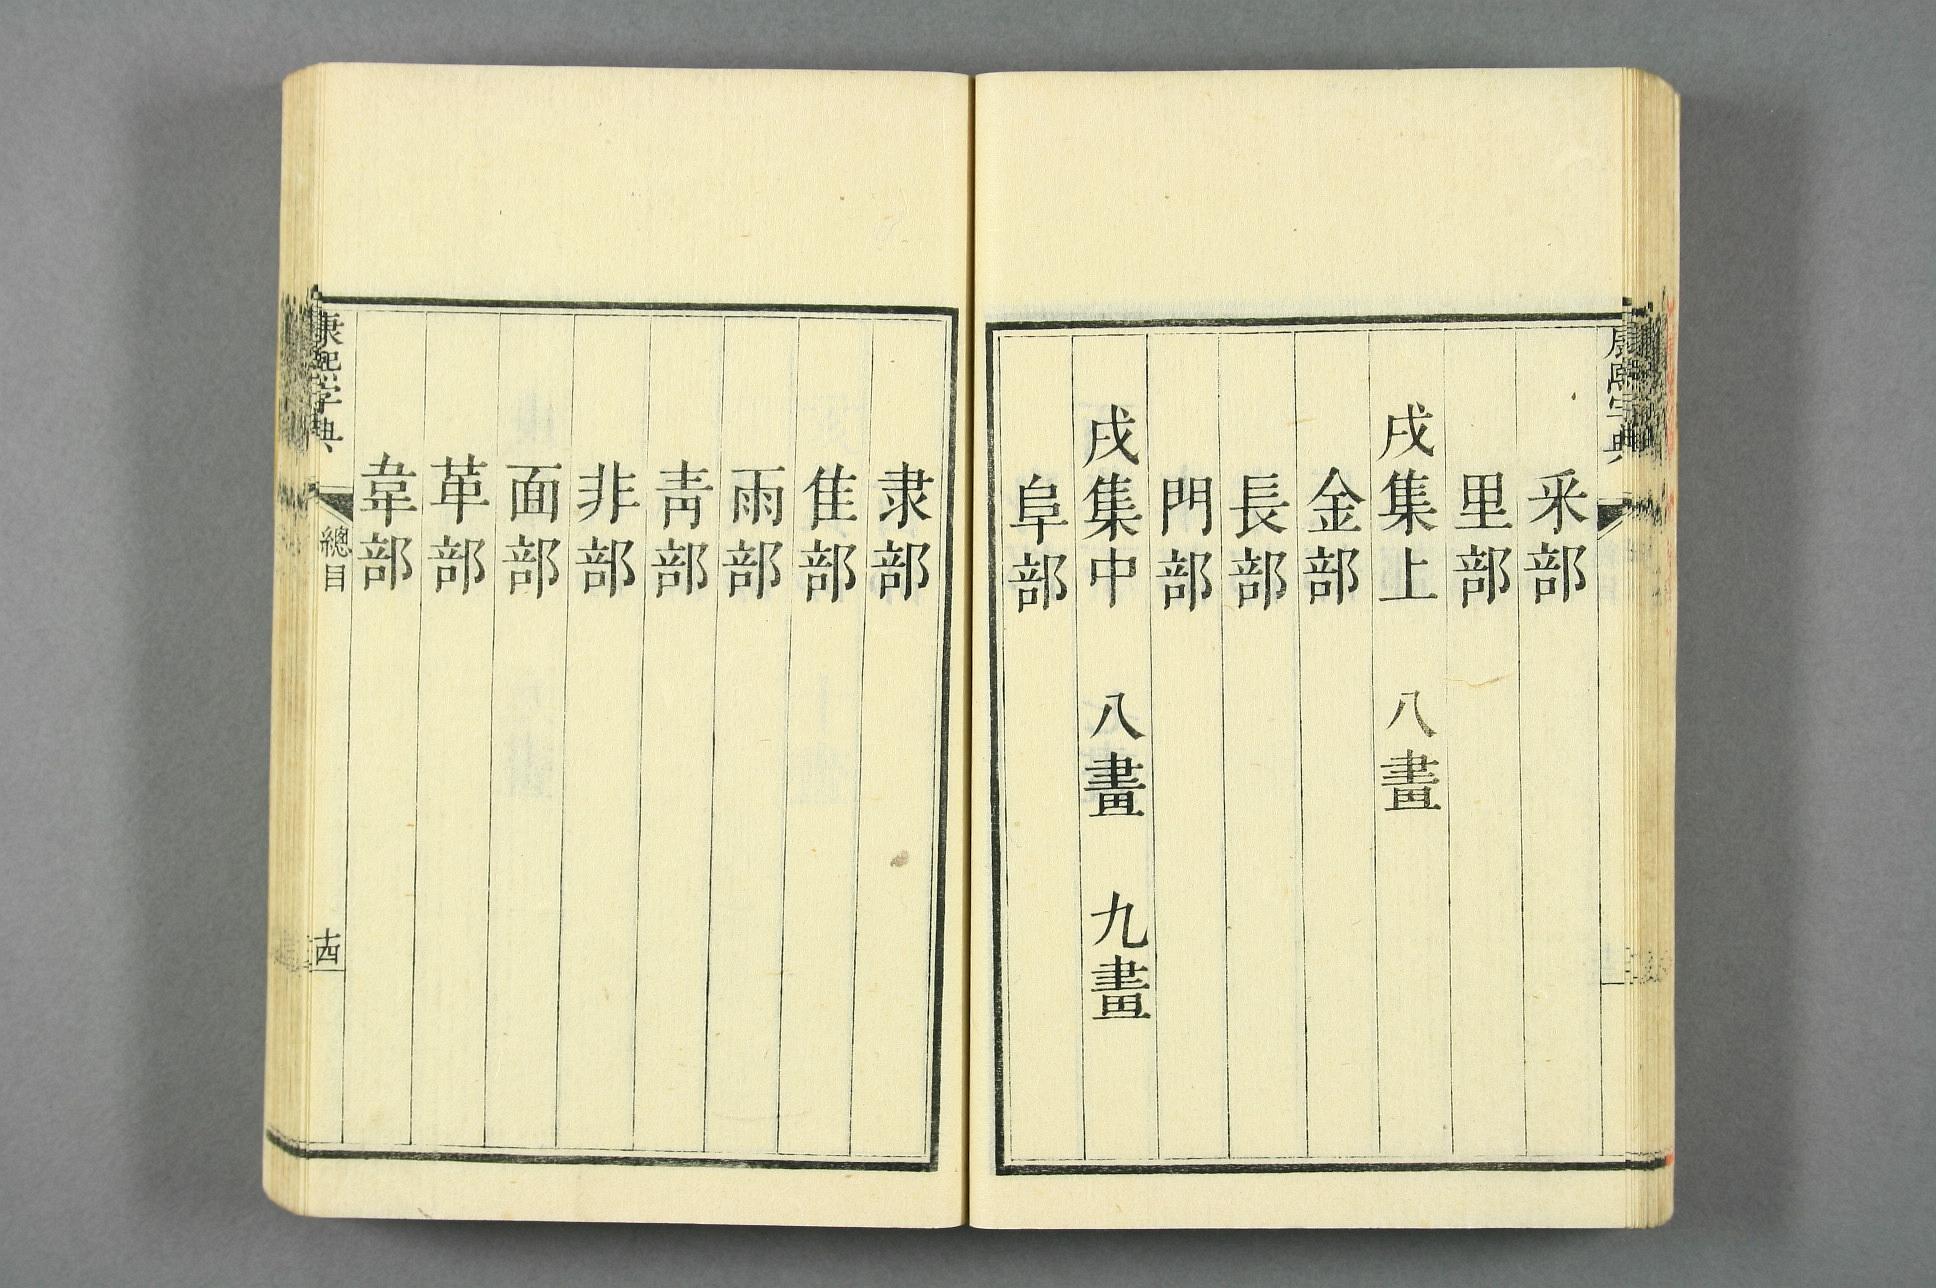 康熙字典
釆部
里部
戌集上 八畫
金部
長部
門部
戌集中 八畫 九畫
阜部
隶部
隹部
雨部
靑部
非部
面部
革部
韋部
康熙字典 總目 十四